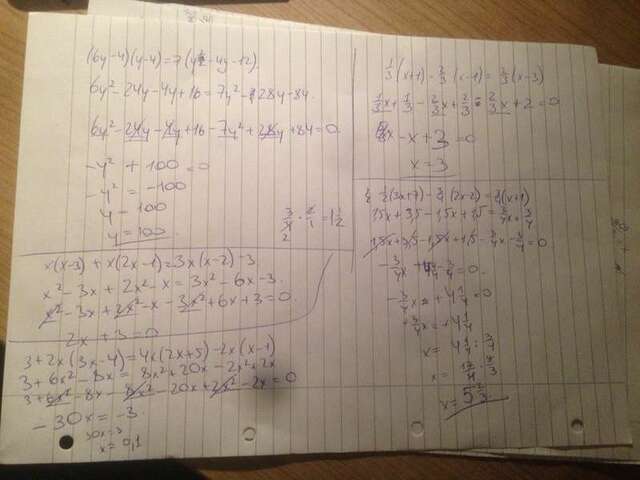 (6y-4)(y-4)=7(y²-4y-12)
6y²-24y-4y+16=7y²-28y-84
6y²-24y-4y+16-7y²+28y+84=0
-y²+100=0
-y²=-100
y=100
x(x-3)+x(2x-1)=3x(x-2)-3
x²-3x+2x²-x=3x²-6x-3
x²-3x+2x²-x-3x²+6x+3=0
2x+3=0
3+2x(3x-4)=4x(2x+5)-2x(x-1)
3+6x²-8x=8x²+20x-2x²+2x
3+6x²-8x-8x²-20x+2x²-2x=0
-30x=-3
30x=3
x=0,1
1/3(x+1)-2/3(x-1)=2/3(x-3)
1/3x+1/3-2/3x+2/3-2/3x+2=0
-x+3=0
x=3
1/2(3x+7)-3/4(2x-2)=3/4(x+1)
1,5x+3,5-1,5x+1,5=3/4x+3/4
1,5x+3,5-1,5x+1,5-3/4x-3/4=0
-3/4x+4 1/4=0
+3/4x=+4 1/4
x=4 1/4:3/4
x=5 2/3